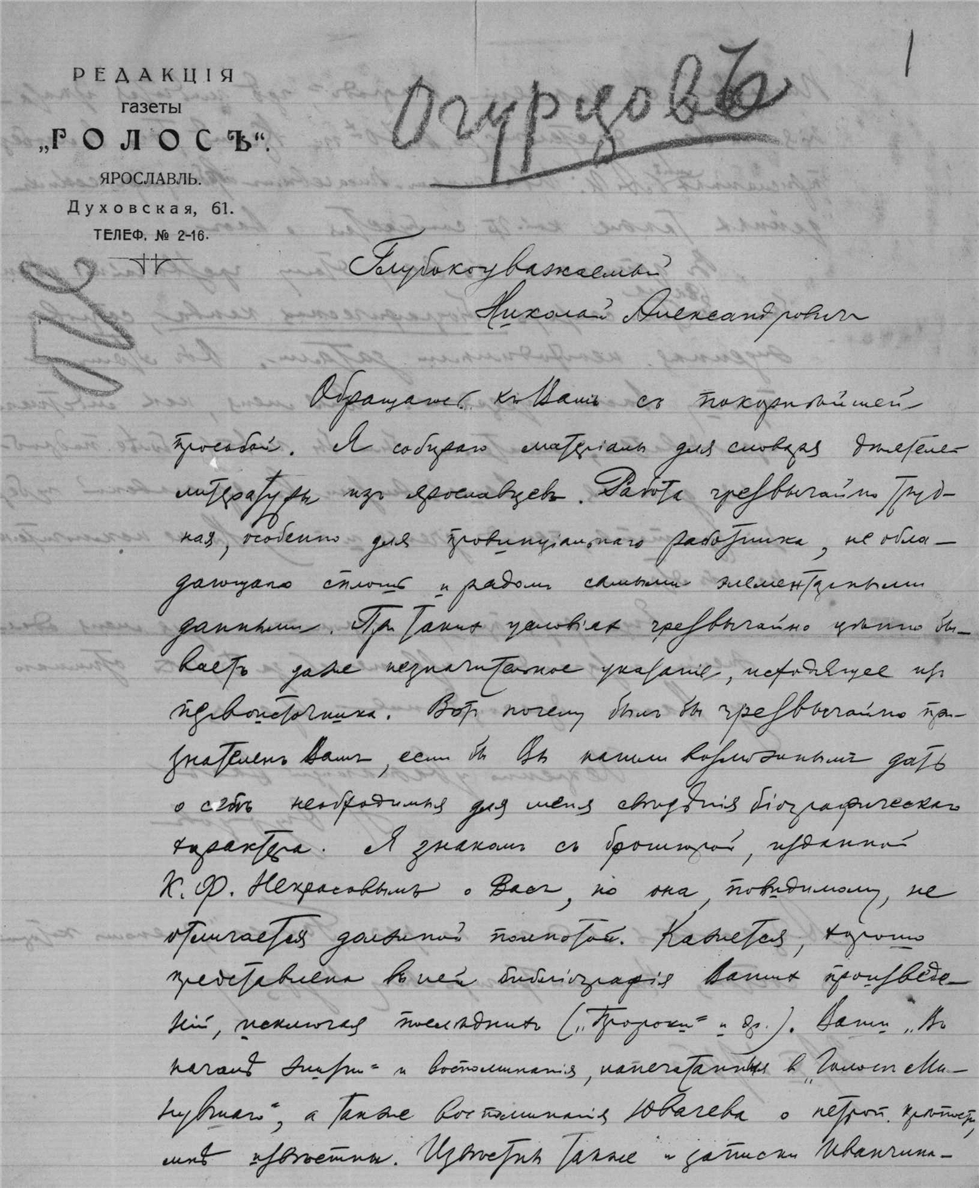 1
Огурцовъ
РЕДАКЦІЯ
газеты
„ГОЛОСЪ“.
ЯРОСЛАВЛЬ.
Духовская, 61.
ТЕЛЕФ. № 2-16.
Глубокоуважаемый
Николай Александровичъ
Обращаюсь къ Вамъ съ покорнѣйшей
просьбой. Я собираю матеріалы для словаря дѣятелей
литературы изъ ярославцевъ. Работа чрезвычайно труд-
ная, особенно для провинціальнаго работника, не обла-
дающаго сплошь и рядомъ самыми элементарными
данными. При такихъ условіяхъ чрезвычайно цѣнно бы-
ваетъ даже незначительное указаніе, исходящее изъ
первоисточника. Вотъ почему былъ бы чрезвычайно при-
знателенъ Вамъ, если бы Вы нашли возможнымъ дать
о себѣ необходимыя для меня свѣдѣнія біографическаго
характера. Я знакомъ съ брошюрой, изданной
К. Ф. Некрасовымъ о Васъ, но она, повидимому, не
отличается должной полнотой. Кажется, хорошо
представлена въ ней библіографія Вашихъ произведе-
ній, исключая послѣднихъ („Пророки“ и др.). Ваши „Въ
началѣ жизни“ и воспоминанія, напечатанныя в „Голосѣ Ми-
нувшаго“, а также воспоминанія Ювачева о петроп. крѣпости,
мнѣ извѣстны. Извѣстны также и записки Иванчина-